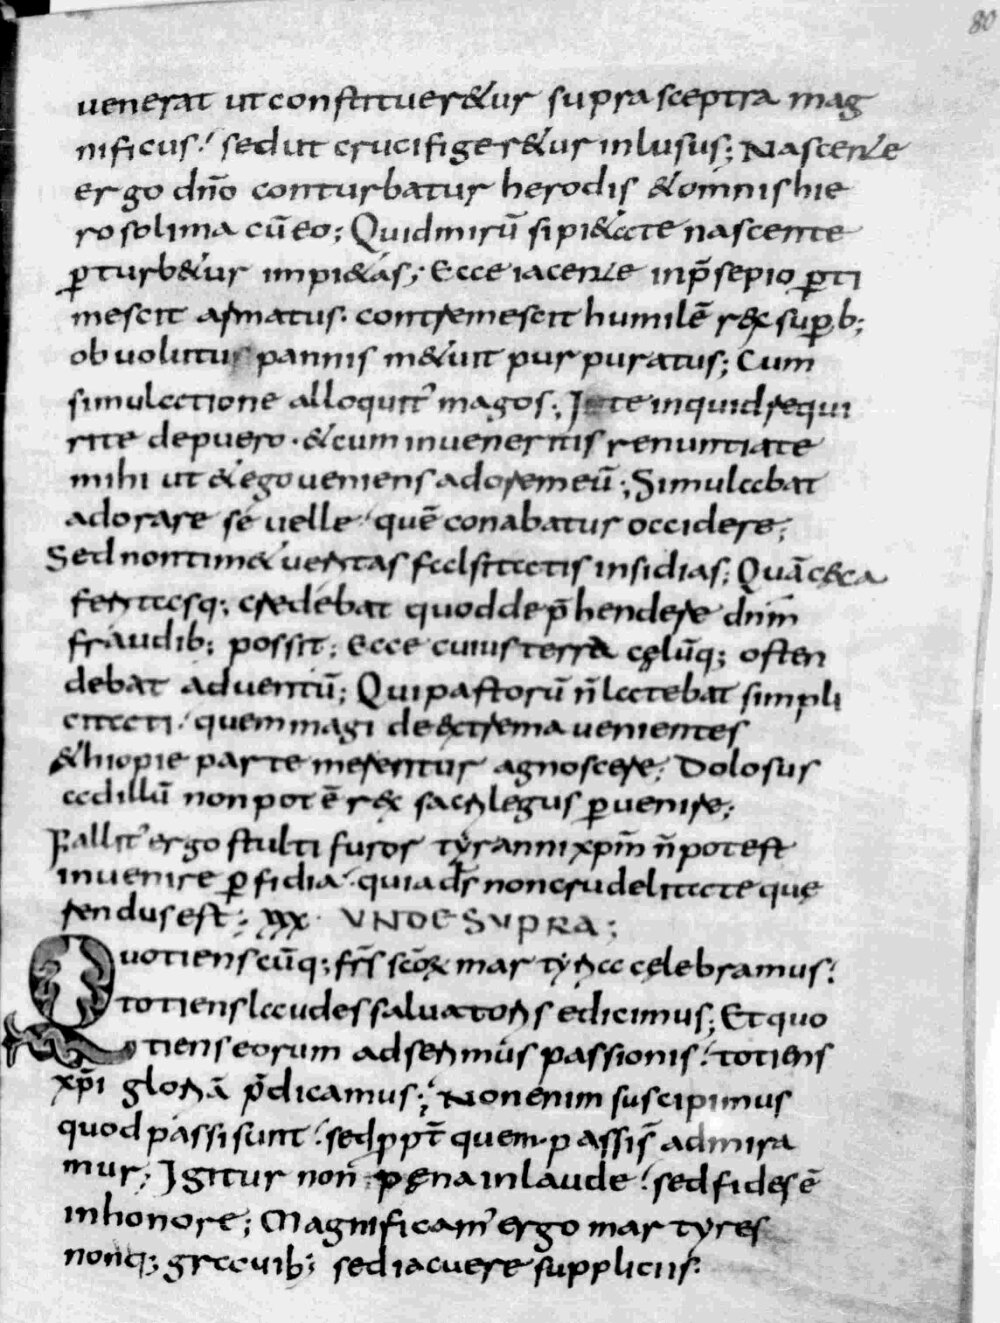 80
uenerat ut constituer&ur supra sceptra mag
nificus; sed ut crucifiger&ur inlusus; Nascente
ergo dño conturbatur herodis & omnis hie
rosolima cū eo; Quid mirū si pi&ate nascente
ꝑturb&ur impi&as; Ecce iacente in p̄sepio ꝑti
mescit armatus. contremescit humilē rex suꝑb;
obuolutus pannis m&uit purpuratus; Cum
simulatione alloquit' magos; Ite inquid requi
rite de puero. & cum inueneritis renuntiate
mihi ut & ego ueniens adorem eū; Simulabat
adorare se uelle quē conabatur occidere;
Sed non tim& ueritas falsitatis insidias; Quā c&ca
feritasq; credebat quod dep̄hendere dnm̄
fraudib; possit; Ecce cuius terra cęlūq; osten
debat aduentū; Qui pastorū n̄ latebat simpli
citati. quem magi de extrema uenientes
&hiopie parte merentur agnoscere; Dolosus
ad illū non pot ē rex sacrilegus ꝑuenire;
Fallit' ergo stulti furor tyranni xp̄m n̄ potest
inuenire ꝑfidia. quia d̄s non crudelitate quę
rendus est; XXX. UNDE SUPRA;
Quotienscūq; fr̄s sc̄oꝝ martyria cęlebramus.
totiens laudes saluatoris edicimus; Et quo
tiens eorum adserimus passionis. totiens
xp̄i gloriā p̄dicamus; Non enim suscipimus
quod passi sunt. sed ꝓpt̄ quem passi s̄ admira
mur; Igitur non pęna in laude. sed fides ē
in honore; Magnificam' ergo martyres
nonq; grauib; sed iacuere suppliciis.